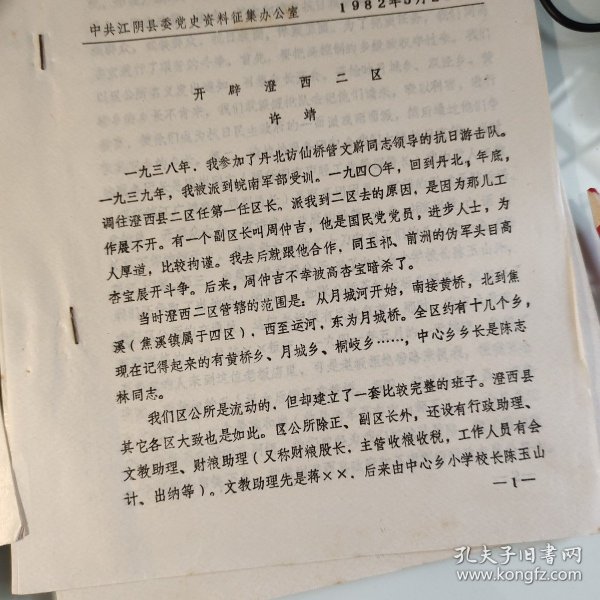 中共江阴县委党史资料征集办公室 1982年5月
开辟澄西二区
许靖
一九三八年，我参加了丹北访仙桥管文蔚同志领导的抗日游击队。
一九三九年，我被派到皖南军部受训。一九四〇年，回到丹北，年底，
调往澄西县二区任第一任区长。派我到二区去的原因，是因为那儿工
作展不开。有一个副区长叫周仲吉，他是国民党党员，进步人士，为
人厚道，比较拘谨。我去后就跟他合作，同玉祁、前洲的伪军头目高
杏宝展开斗争。后来，周仲吉不幸被高杏宝暗杀了。
当时澄西二区管辖的范围是：从月城河开始，南接黄桥，北到焦
溪（焦溪镇属于四区），西至运河，东为月城桥。全区约有十几个乡，
现在记得起来的有黄桥乡、月城乡、桐岐乡……，中心乡乡长是陈志
林同志。
我们区公所是流动的，但却建立了一套比较完整的班子。澄西县
其它各区大致也是如此。区公所除正、副区长外，还设有行政助理、
文教助理、财粮助理（又称财粮股长，主管收粮收税，工作人员有会
计、出纳等）。文教助理先是蒋××，后来由中心乡小学校长陈玉山
—1—
孔夫子旧书网
www.kongfz.com